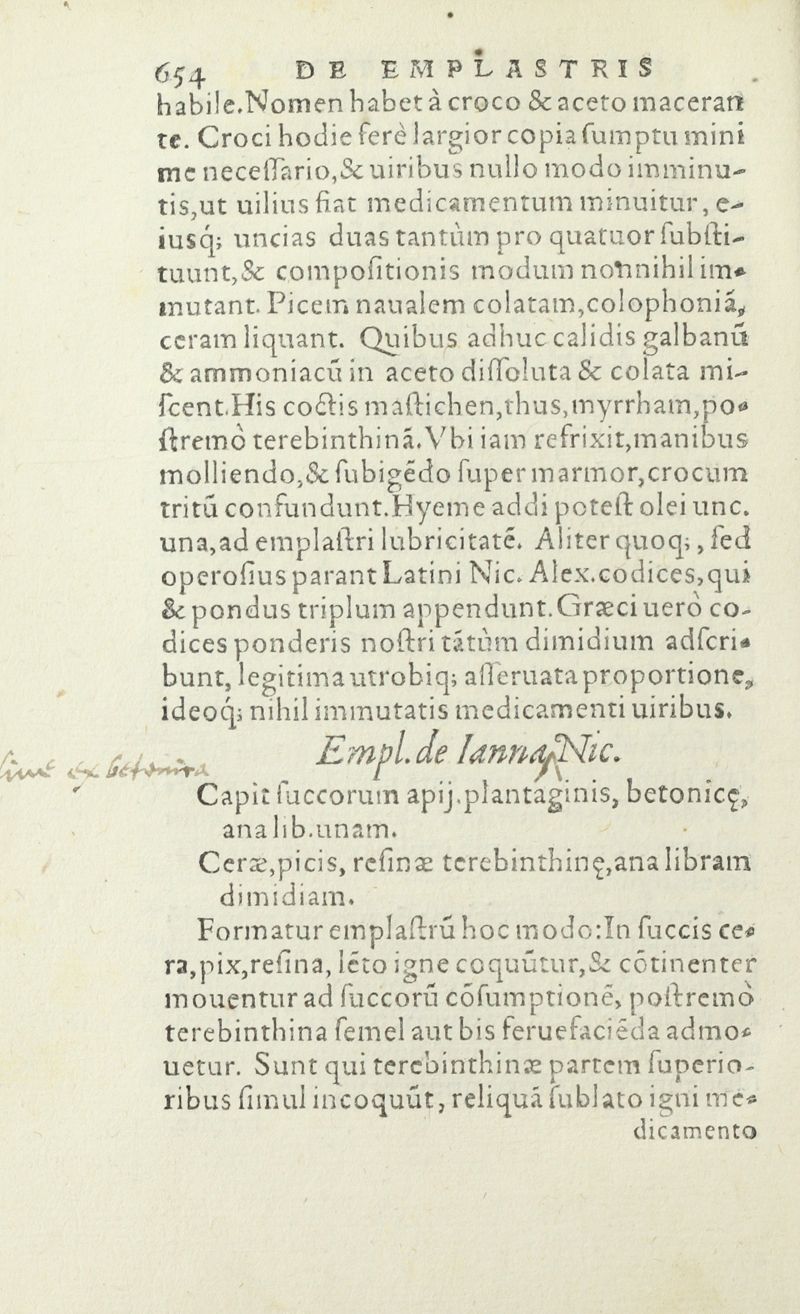 654 DE EMPLASTRIS
habile.Nomen habet à croco & aceto maceran
te. Croci hodie ferè largior copia ſumptu mini
me neceſſario,& uiribus nullo modo imminu-
tis,ut uilius fiat medicamentum minuitur, e-
iusq; uncias duas tantùm pro quatuor ſubſti-
tuunt,& compoſitionis modum nonnihil im-
mutant. Picem naualem colatam,colophoniã,
ceram liquant. Quibus adhuc calidis galbanũ
& ammoniacũ in aceto diſſoluta & colata mi-
ſcent.His coctis maſtichen,thus,myrrham,po-
ſtremò terebinthinã.Vbi iam refrixit,manibus
molliendo,& ſubigẽdo ſuper marmor,crocum
tritũ confundunt.Hyeme addi poteſt olei unc.
una,ad emplaſtri lubricitatẽ. Aliter quoq;, ſed
operoſius parant Latini Nic. Alex.codices,qui
& pondus triplum appendunt.Græci uerò co-
dices ponderis noſtri tãtùm dimidium adſcri-
bunt, legitima utrobiq; aſſeruata proportione,
ideoq; nihil immutatis medicamenti uiribus.
Empl. de Ianna, Nic.
Capit ſuccorum apij,plantaginis, betonicę,
ana lib.unam.
Ceræ,picis, reſinæ terebinthinę,ana libram
dimidiam.
Formatur emplaſtrũ hoc modo:In ſuccis ce-
ra,pix,reſina, lẽto igne coquũtur,& cõtinenter
mouentur ad ſuccorũ cõſumptionẽ, poſtremò
terebinthina ſemel aut bis feruefaciẽda admo-
uetur. Sunt qui terebinthinæ partem ſuperio-
ribus ſimul incoquũt, reliquã ſublato igni me-
dicamento